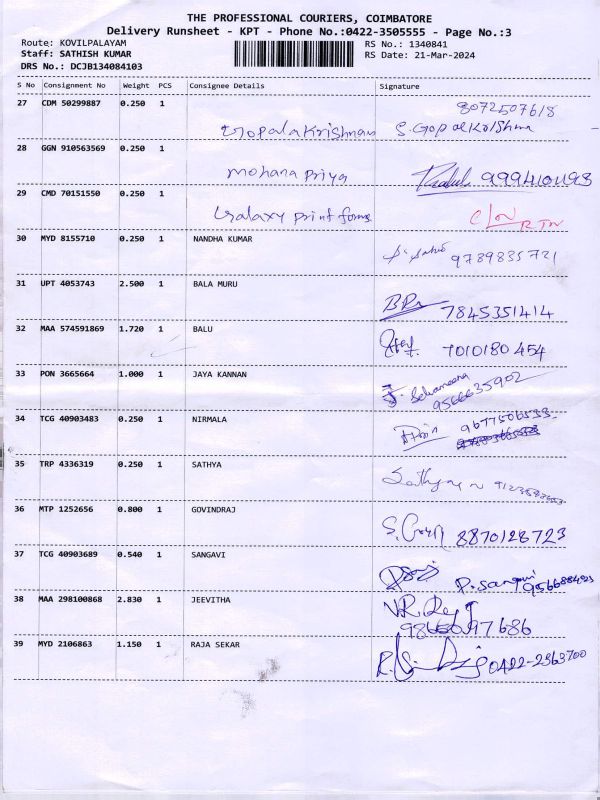 THE PROFESSIONAL COURIERS, COIMBATORE
Delivery Runsheet - KPT - Phone No.:0422-3505555 - Page No.:3
Route: KOVILPALAYAM
RS No.: 1340841
Staff: SATHISH KUMAR
RS Date: 21-Mar-2024
DRS No.: DCJB134084103
S No Consignment No Weight PCS Consignee Details Signature
27 CDM 50299887 0.250 1 8072507618
Gopalakrishnan S. Gopalkrishna
28 GGN 910563569 0.250 1
Mohana Priya
29 CMD 70151550 0.250 1
Galaxy print forms RTN
30 MYD 8155710 0.250 1 NANDHA KUMAR
9789835721
31 UPT 4053743 2.500 1 BALA MURU
7845351414
32 MAA 574591869 1.720 1 BALU
7010180454
33 PON 3665664 1.000 1 JAYA KANNAN
9566635902
34 TCG 40903483 0.250 1 NIRMALA
9677506533
35 TRP 4336319 0.250 1 SATHYA
36 MTP 1252656 0.800 1 GOVINDRAJ
8870128723
37 TCG 40903689 0.540 1 SANGAVI
P. Sangavi
38 MAA 298100868 2.830 1 JEEVITHA
39 MYD 2106863 1.150 1 RAJA SEKAR
0422-2363700